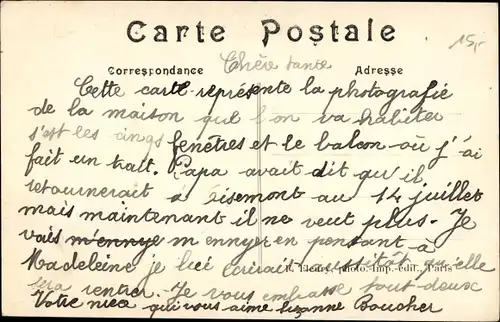 Carte Postale
15,-
Correspondance
Adresse
Chère tante
Cette carte représente la photografie
de la maison que l'on va habiter
s'est les cinqs fenêtres et le balcon où j'ai
fait un trait. Papa avait dit qu'il
retournerait a Oisemont au 14 juillet
mais maintenant il ne veut plus. Je
vais m'ennye m'ennyer en pensant à
Madeleine je lui écrirait aussitôt qu'elle
phot. Imp. édit., Paris
sera rentrer. Je vous embrasse tout deux
Votre nièce qui vous aime Suzanne Boucher